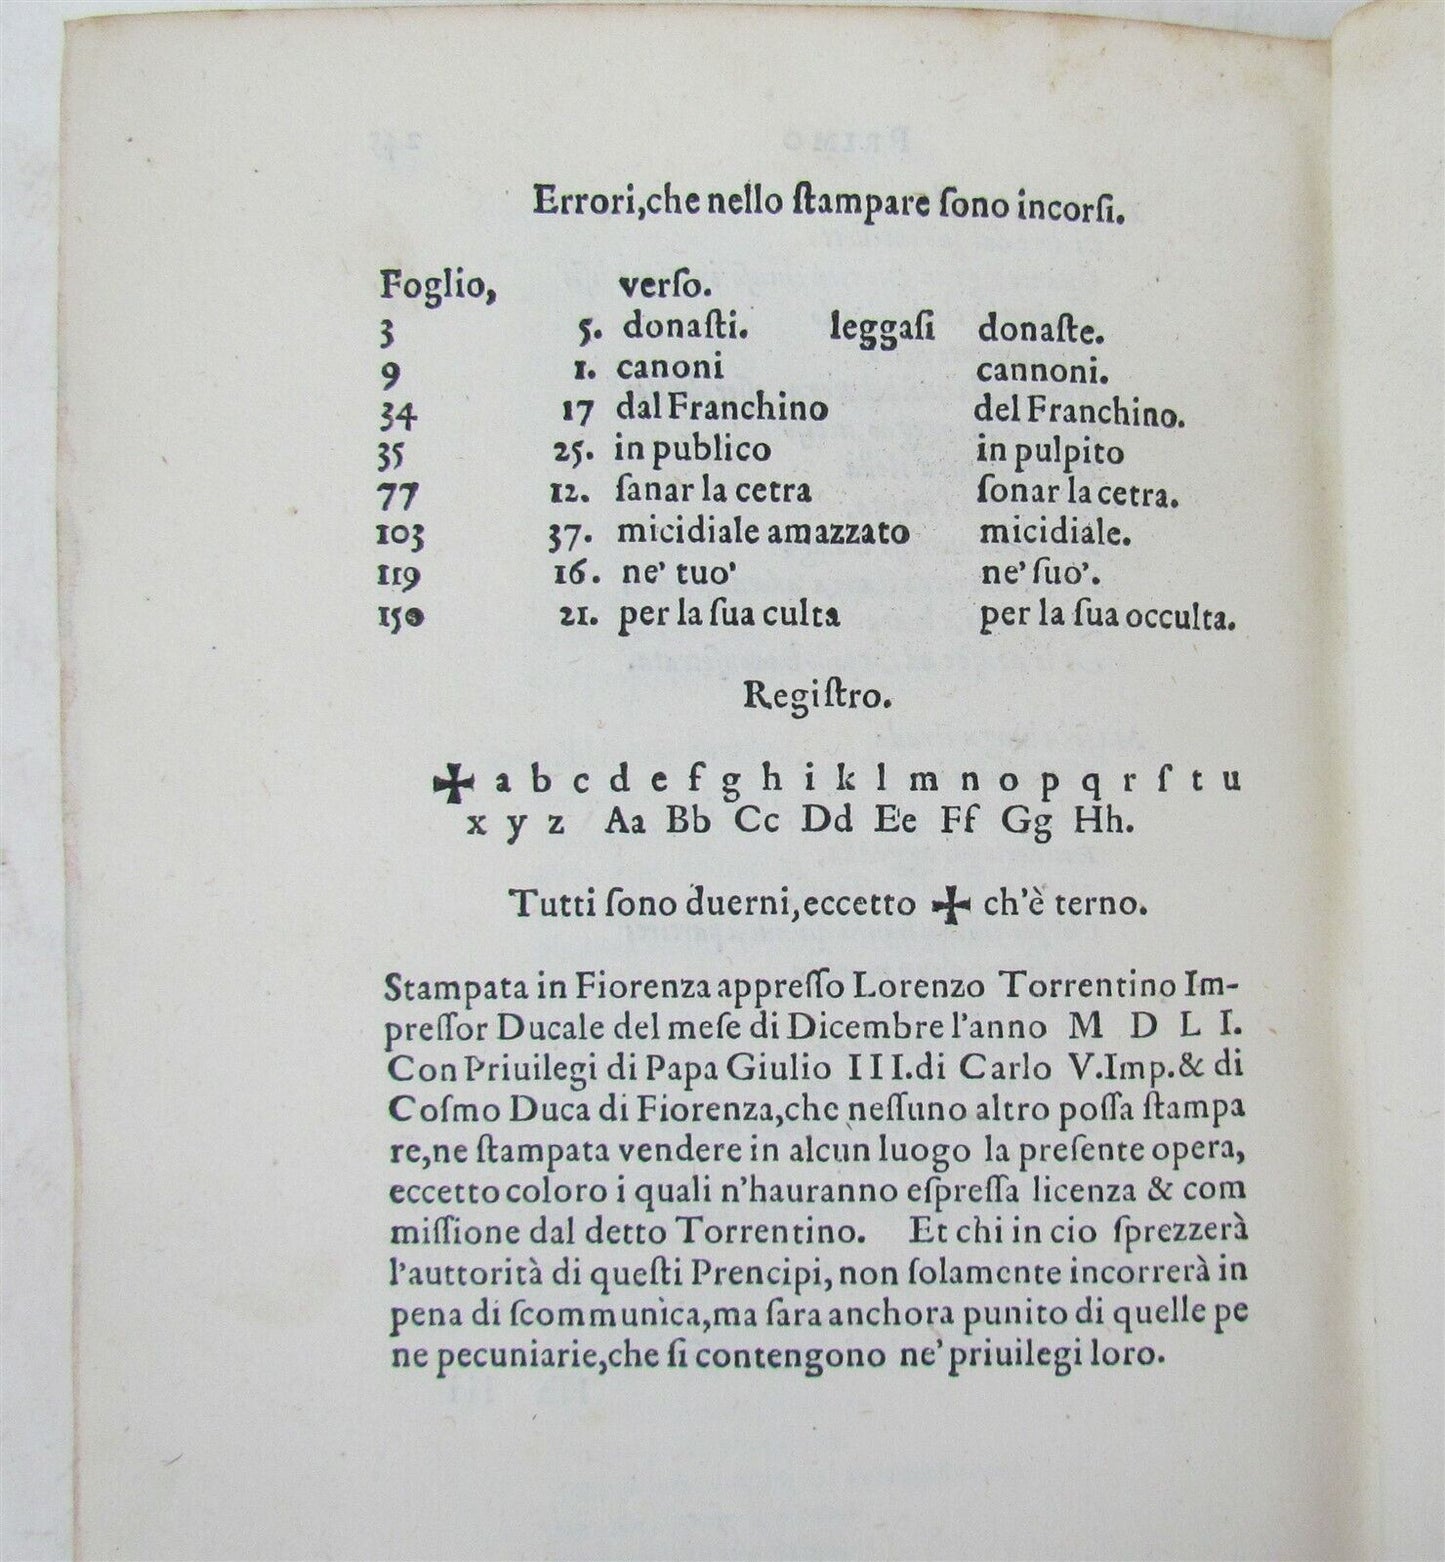 Errori,che nello ſtampare ſono incorſi.
Foglio, verſo.
3 5. donaſti. leggaſi donaſte.
9 1. canoni cannoni.
34 17 dal Franchino del Franchino.
35 25. in publico in pulpito
77 12. ſanar la cetra ſonar la cetra.
103 37. micidiale amazzato micidiale.
119 16. ne' tuo' ne' ſuo'.
150 21. per la ſua culta per la ſua occulta.
Regiſtro.
✠ a b c d e f g h i k l m n o p q r ſ t u
x y z Aa Bb Cc Dd Ee Ff Gg Hh.
Tutti ſono duerni,eccetto ✠ ch'è terno.
Stampata in Fiorenza appreſſo Lorenzo Torrentino Im-
preſſor Ducale del meſe di Dicembre l'anno M D L I.
Con Priuilegi di Papa Giulio I I I.di Carlo V.Imp.& di
Coſmo Duca di Fiorenza,che neſſuno altro poſſa ſtampa
re,ne ſtampata vendere in alcun luogo la preſente opera,
eccetto coloro i quali n'hauranno eſpreſſa licenza & com
miſſione dal detto Torrentino. Et chi in cio ſprezzerà
l'auttorità di queſti Prencipi, non ſolamente incorrerà in
pena di ſcommunica,ma ſara anchora punito di quelle pe
ne pecuniarie,che ſi contengono ne' priuilegi loro.